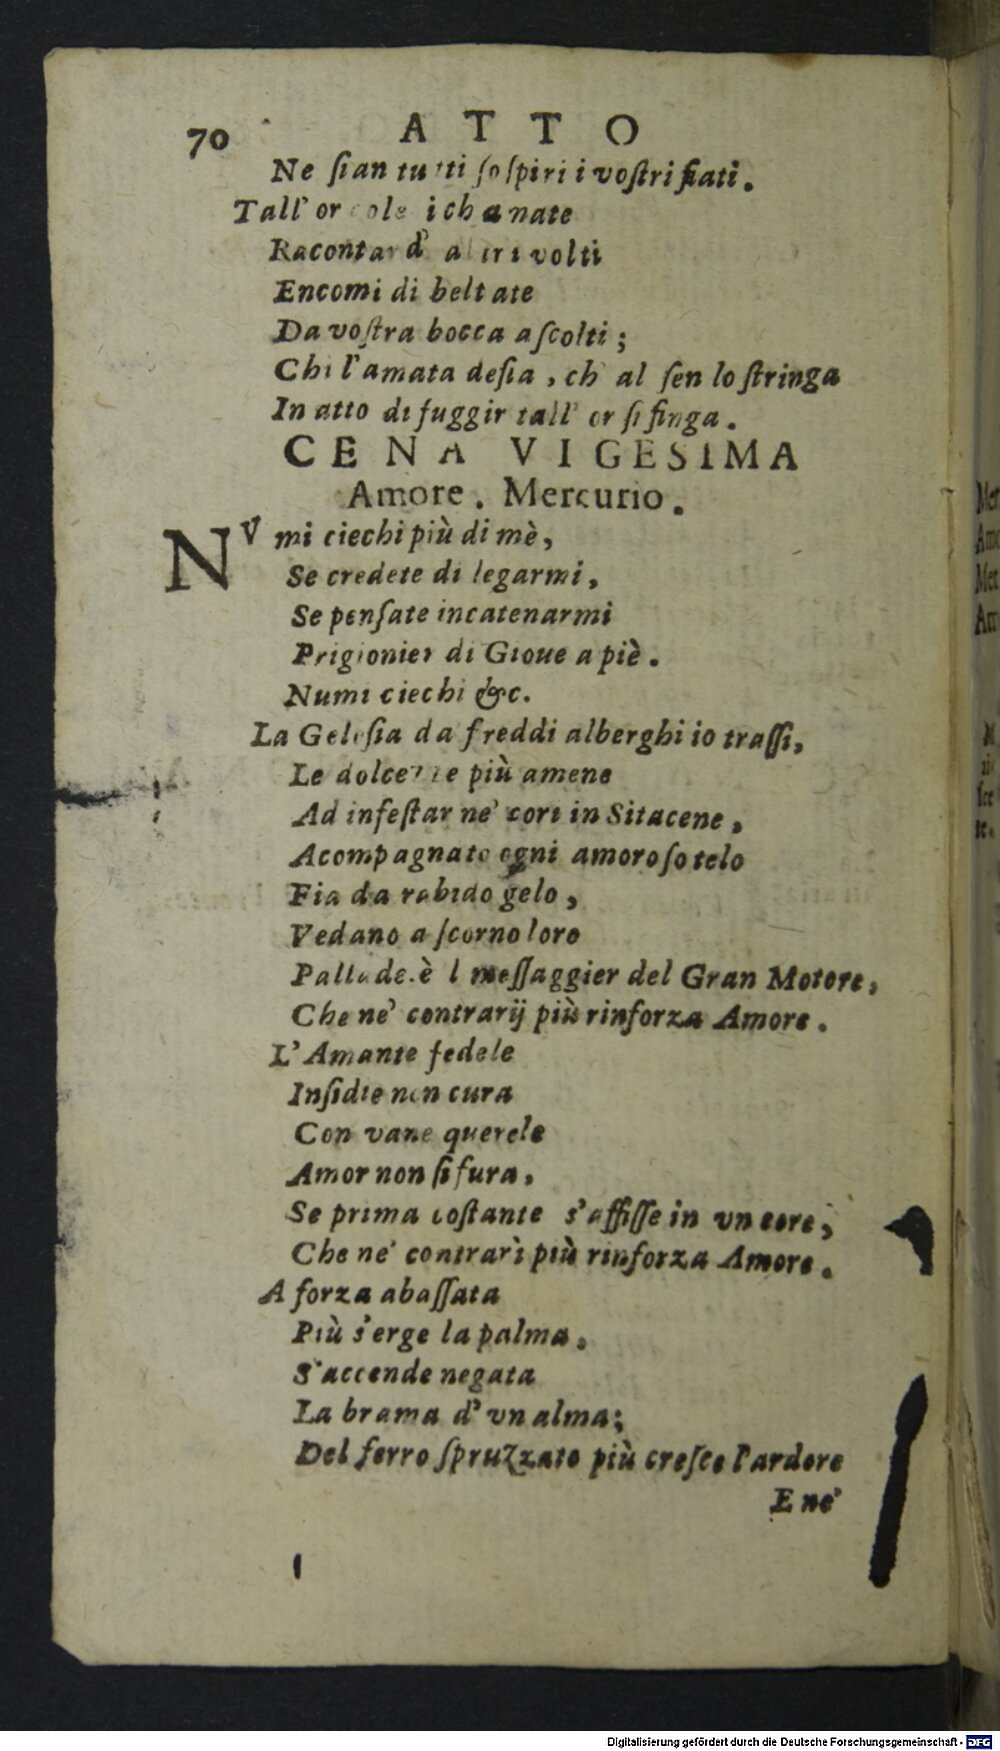 70 ATTO
Ne ſian tutti ſoſpiri i voſtri fiati.
Tall' or ichanate
Racontar d' altri volti
Encomi di beltate
Da voſtra bocca aſcolti;
Chi l'amata deſia, ch' al ſen lo ſtringa
In atto di fuggir tall' or ſi finga.
CENA VIGESIMA
Amore. Mercurio.
NVmi ciechi più di mè,
Se credete di legarmi,
Se penſate incatenarmi
Prigionier di Gioue a piè.
Numi ciechi &c.
La Geloſia da freddi alberghi io traſſi,
Le dolcezze più amene
Ad infeſtar ne' cori in Sitacene,
Acompagnato ogni amoroſo telo
Fia da rabido gelo,
Vedano a ſcorno loro
Pallade.è l meſſaggier del Gran Motore,
Che ne' contrarij più rinforza Amore.
L'Amante fedele
Inſidie non cura
Con vane querele
Amor non ſi fura,
Se prima coſtante s'affiſſe in vn core;
Che ne' contrarì più rinforza Amore.
A forza abaſſata
Più s'erge la palma,
S'accende negata
La brama d' vn alma;
Del ferro ſpruzzato più creſce l'ardore
E ne'
Mer
Am
Mer
Am
Digitalisierung gefördert durch die Deutsche Forschungsgemeinschaft - DFG